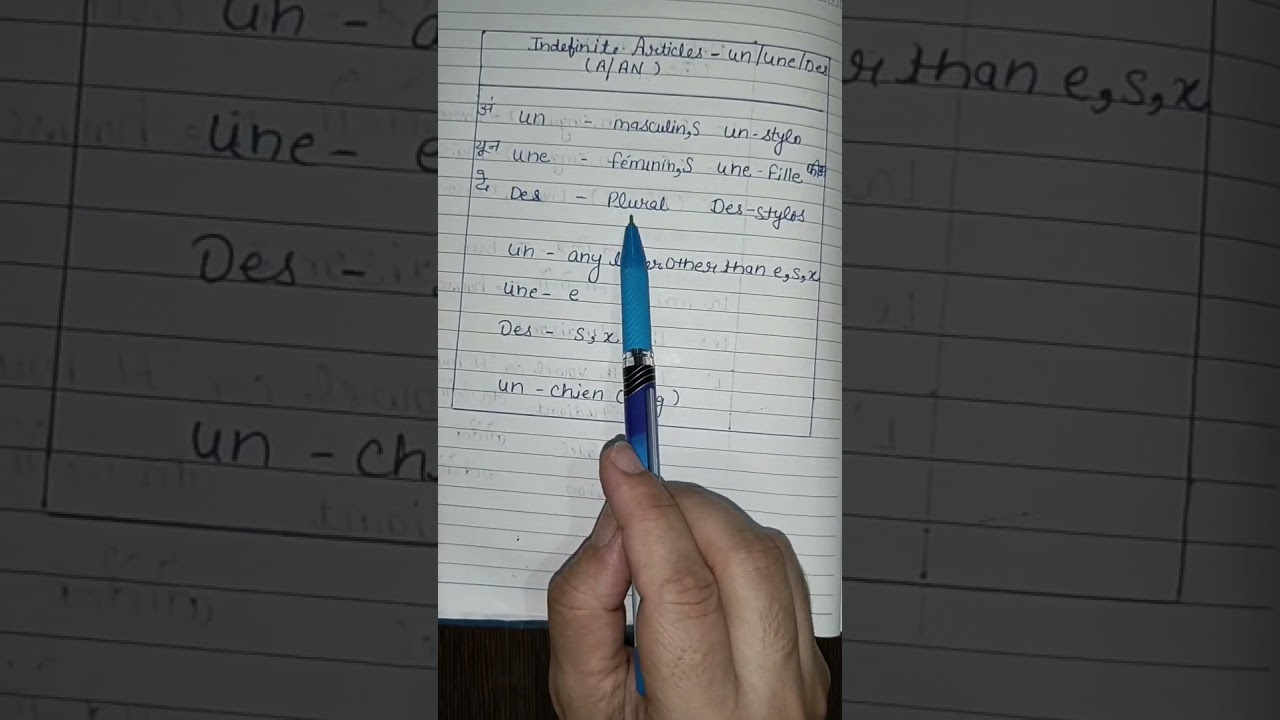 Indefinite Articles - un/une/Des
(A/AN)
अं un - masculin,S un-stylo
यून une - féminin,S une-fille
दे Des - Plural Des-stylos
un - any other than e,s,x
une - e
Des - s,x
un - chien